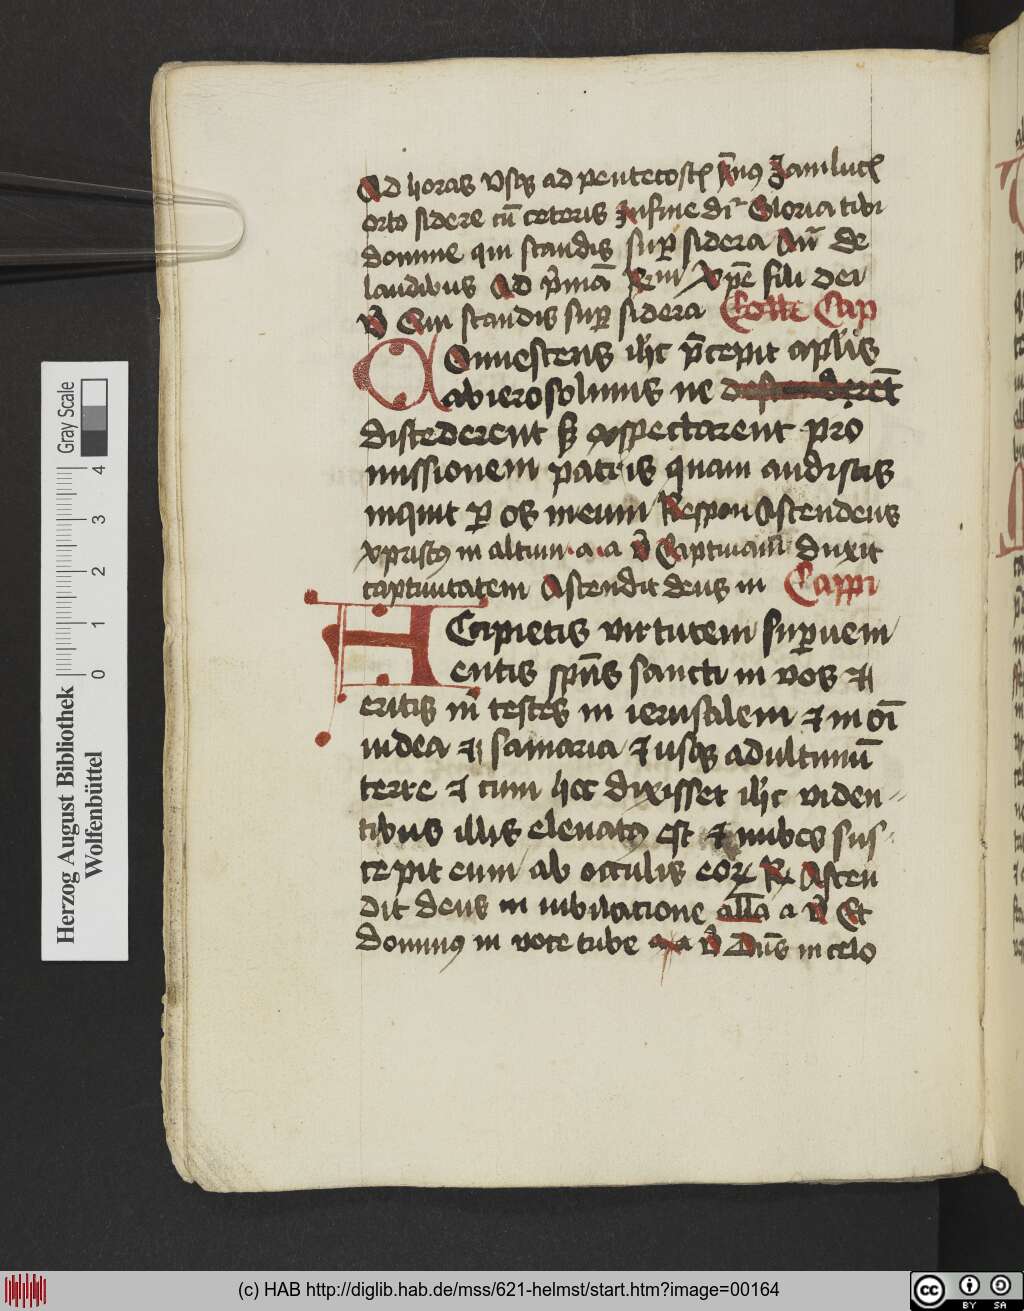 Ad horas vsqz ad pentecosten ȳnus Jam lucis
orto sidere cū ceteris In fine dr̄ Gloria tibi
domine qui scandis sup̱ sidera Añ de
laudibus Ad p̄mā Rm̄ Xpē fili dei
v̄ Qui scandis sup̱ sidera Colcte Cap
Conuescens ihc p̄cepit aplis
ab ierosolimis ne descenderēt
discederent sꝫ exspectarent pro
missionem patris quam audistis
inquit ꝑ os meum Respon Ascendens
xpristus in altum a a v̄ Captiuam duxit
captiuitatem Ascendit deus in Cappi
ACcipietis virtutem supuem
entis spūs sancti in vos et
eritis m̄ testes in ierusalem et in oī
iudea et samaria et usqz ad ultimū
terre et cum hec dixisset ihc viden
tibus illis eleuatus est et nubes sus
cepit eum ab occulis eorꝝ R̸ Ascen
dit deus in iubilacione alla a v̄ Et
dominus in voce tube a a v̄ Dūs in celo
Herzog August Bibliothek
Wolfenbüttel
0 1 2 3 4
Gray Scale
(c) HAB http://diglib.hab.de/mss/621-helmst/start.htm?image=00164
cc BY SA